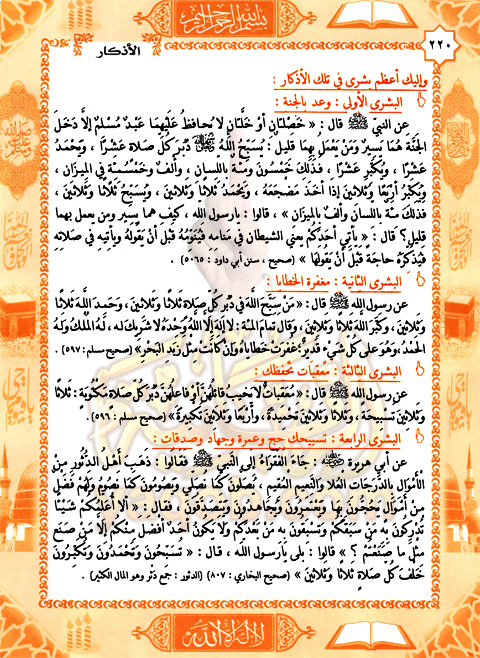 بسم الله الرحمن الرحيم
٢٢٠
الأذكار
وإليك أعظم بشرى في تلك الأذكار :
البشرى الأولى : وعد بالجنة :
عن النبي ﷺ قال : « خَصْلَتَانِ أَوْ خَلَّتَانِ لَا يُحَافِظُ عَلَيْهِمَا عَبْدٌ مُسْلِمٌ إِلَّا دَخَلَ
الجَنَّةَ هُمَا يَسِيرٌ وَمَنْ يَعْمَلُ بِهِمَا قَلِيلٌ : يُسَبِّحُ اللَّهَ دُبُرَ كُلِّ صَلَاةٍ عَشْرًا ، وَيَحْمَدُ
عَشْرًا ، وَيُكَبِّرُ عَشْرًا ، فَذَلِكَ خَمْسُونَ وَمِئَةٌ بِاللسانِ ، وألفٌ وخَمْسُمئةٍ فِي الميزانِ ،
وَيُكَبِّرُ أَرْبَعًا وَثَلاثينَ إِذَا أَخَذَ مَضْجَعَهُ ، وَيَحْمَدُ ثَلاثًا وَثَلاثينَ ، وَيُسَبِّحُ ثَلاثًا وَثَلاثينَ ،
فَذَلكَ مئةٌ باللسان وألفٌ بالميزانِ » ، قالوا : يارسول الله ، كيف هما يسير ومن يعمل بهما
قليل؟ قال : « يأتي أحدَكُمْ يعني الشيطان في مَنَامِهِ فَيُنَوِّمُهُ قَبْلَ أَنْ يَقُولَهُ ويأتِيهِ في صَلاتِهِ
فَيُذَكِّرُهُ حَاجَةً قَبْلَ أَنْ يَقُولَهَا » (صحيح ، سنن أبي داود : ٥٠٦٥) .
البشرى الثانية : مغفرة الخطايا :
عن رسول الله ﷺ قال : « مَنْ سَبَّحَ اللَّهَ فِي دُبُرِ كُلِّ صَلاةٍ ثَلاثًا وَثَلاثينَ ، وَحَمِدَ اللَّهَ ثَلاثًا
وَثَلاثينَ ، وَكَبَّرَ اللَّهَ ثَلاثًا وَثَلاثينَ ، وقال تَمَامَ المئة : لا إِلَهَ إِلَّا اللَّهُ وَحْدَهُ لا شَرِيكَ له ، لَهُ المُلْكُ وَلَهُ
الحَمْدُ ، وَهُوَ عَلَى كُلِّ شَيْءٍ قَدِيرٌ ؛ غُفِرَتْ خَطَايَاهُ وَإِنْ كَانَتْ مِثْلَ زَبَدِ البَحْرِ» (صحيح مسلم : ٥٩٧) .
البشرى الثالثة : معقبات تحفظك :
عن رسول الله ﷺ قال : « مُعَقِّبَاتٌ لا يَخِيبُ قَائِلُهُنَّ أَوْ فَاعِلُهُنَّ دُبُرَ كُلِّ صَلاةٍ مَكْتُوبَةٍ : ثَلاثٌ
وَثَلاثينَ تَسْبِيحَةً ، وَثَلاثًا وَثَلاثينَ تَحْمِيدَةً ، وَأَرْبَعًا وَثَلاثينَ تَكْبِيرَةً » (صحيح مسلم : ٥٩٦) .
البشرى الرابعة : تسبيحك حج وعمرة وجهاد وصدقات :
عن أبي هريرة ، قال : جَاءَ الفُقَرَاءُ إِلَى النَّبِيِّ ﷺ فَقَالُوا : ذَهَبَ أَهْلُ الدُّثُورِ مِنْ
الأَمْوَالِ بِالدَّرَجَاتِ العُلَا وَالنَّعِيمِ المُقِيمِ ، يُصَلُّونَ كَمَا نُصَلِّي وَيَصُومُونَ كَمَا نَصُومُ وَلَهُمْ فَضْلٌ
مِنْ أَمْوَالٍ يَحُجُّونَ بِهَا وَيَعْتَمِرُونَ وَيُجَاهِدُونَ وَيَتَصَدَّقُونَ ، قال : « أَلَا أُعَلِّمُكُمْ شَيْئًا
تُدْرِكُونَ بِهِ مَنْ سَبَقَكُمْ وَتَسْبِقُونَ بِهِ مَنْ بَعْدَكُمْ وَلَا يَكُونُ أَحَدٌ أَفْضَلَ مِنْكُمْ إِلَّا مَنْ صَنَعَ
مِثْلَ مَا صَنَعْتُمْ ؟ » قالوا : بلى يارسول الله ، قال : « تُسَبِّحُونَ وَتَحْمَدُونَ وَتُكَبِّرُونَ
خَلْفَ كُلِّ صَلاةٍ ثَلاثًا وَثَلاثينَ » (صحيح البخاري : ٨٠٧) (الدثور : جمع دثر وهو المال الكثير) .
لا إله إلا الله